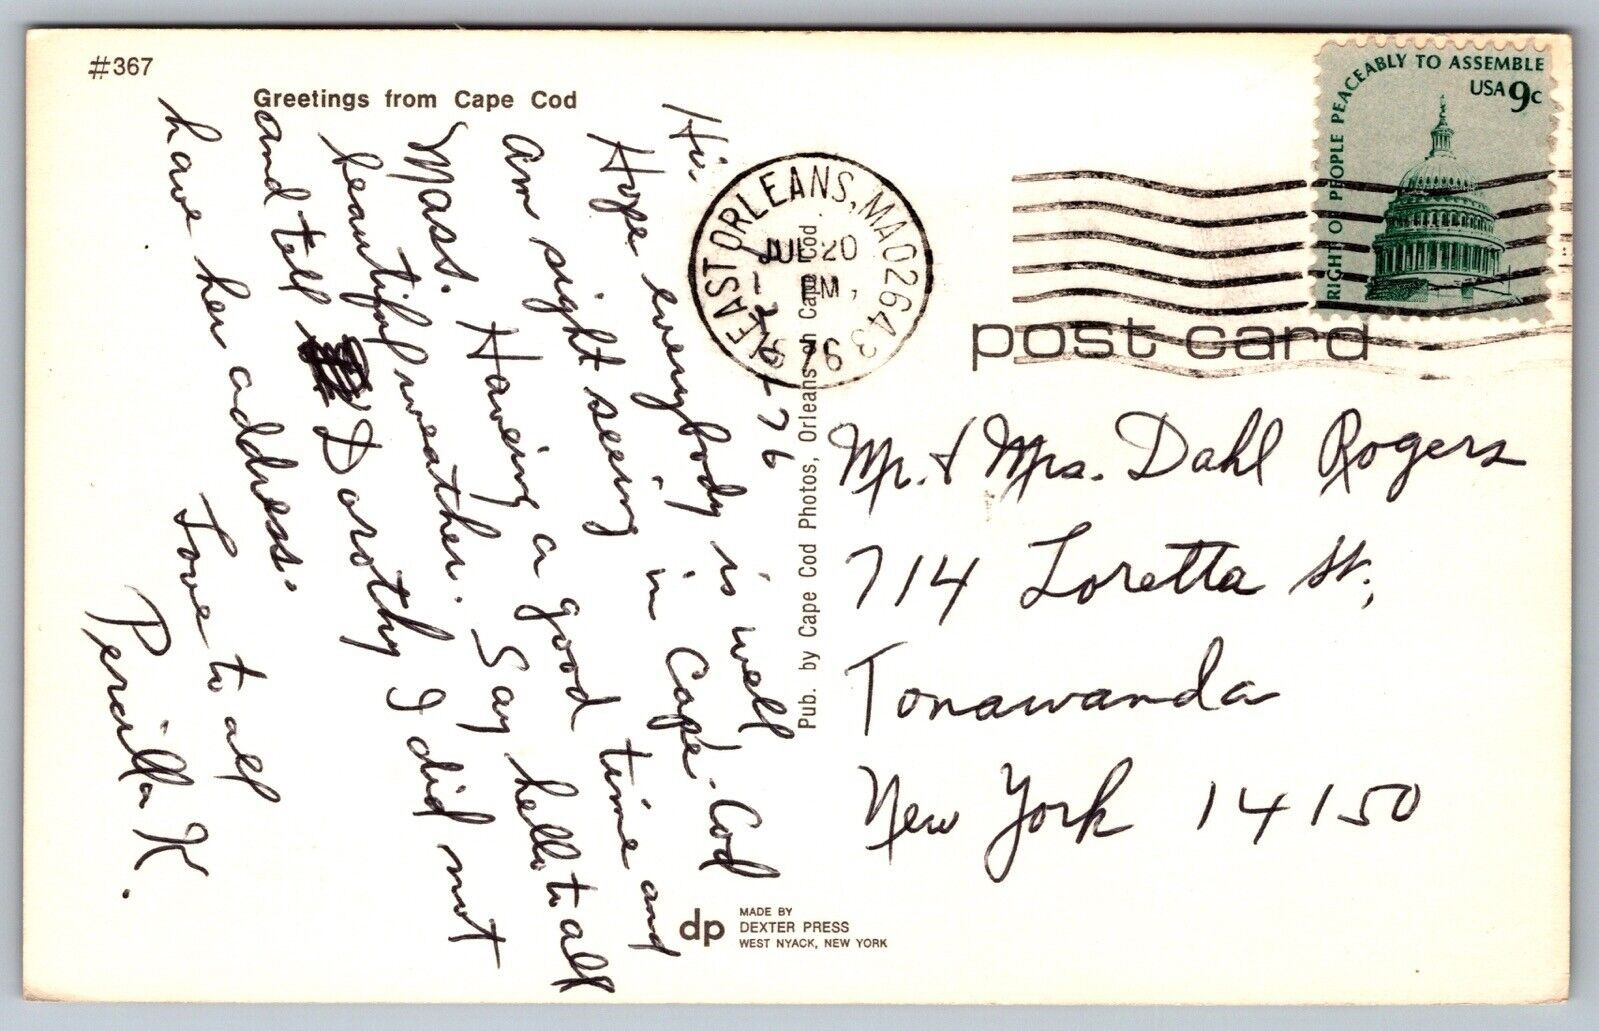 #367
Greetings from Cape Cod
Hi.
Hope everybody is well
am sight seeing in Cape-Cod
Mass. Haveing a good time and
beautiful weather. Say hello to all
and tell Dorothy I did not
have her address.
Love to all
Percilla K.
Pub. by Cape Cod Photos, Orleans on Cape Cod.
MADE BY
dp DEXTER PRESS
WEST NYACK, NEW YORK
EAST ORLEANS, MA 02643
JUL 20
PM
RIGHT OF PEOPLE PEACEABLY TO ASSEMBLE
USA 9c
post card
Mr. & Mrs. Dahl Rogers
714 Loretta St.,
Tonawanda
New York 14150